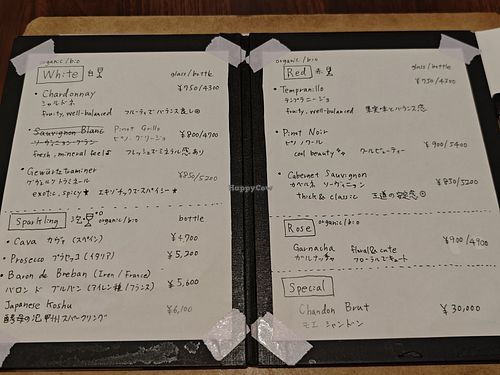 organic/bio
White 白 glass/bottle
• Chardonnay ¥750/4300
シャルドネ
fruity, well-balanced フルーティでバランス良し
• Sauvignon Blanc Pinot Grillo ¥900/4700
ソーヴィニヨン・ブラン ピノ・グリージョ
fresh, mineral feel♪ フレッシュでミネラル感あり
• Gewürztraminer ¥850/5200
ゲヴュルツトラミネール
exotic, spicy★ エキゾチックでスパイシー★
Sparkling 泡 organic/bio bottle
• Cava カヴァ (スペイン) ¥4,700
• Prosecco プロセッコ (イタリア) ¥5,200
• Baron de Breban (Iren/France) ¥5,600
バロン ド ブルバン (アイレン種/フランス)
Japanese Koshu ¥6,100
甲州スパークリング
HappyCow
organic/bio
Red 赤 glass/bottle
• Tempranillo ¥750/4300
テンプラニーリョ
fruity, well-balanced 果実味とバランス感
• Pinot Noir ¥900/5400
ピノノワール
cool beauty クールビューティー
• Cabernet Sauvignon ¥850/5200
カベルネ ソーヴィニヨン
thick & classic 王道の安定感
Rose organic/bio
Garnacha floral & cute ¥900/4900
ガルナッチャ フローラルでキュート
Special
Chandon Brut ¥30,000
モエ シャンドン